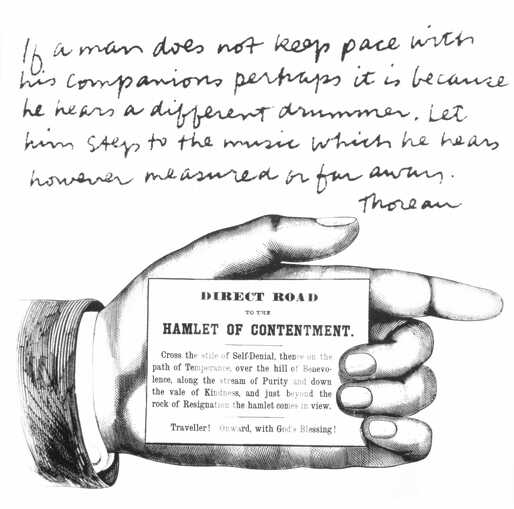 If a man does not keep pace with
his companions perhaps it is because
he hears a different drummer. Let
him step to the music which he hears
however measured or far away.
Thoreau
DIRECT ROAD
TO THE
HAMLET OF CONTENTMENT.
Cross the stile of Self-Denial, thence on the
path of Temperance, over the hill of Benevo-
lence, along the stream of Purity and down
the vale of Kindness, and just beyond the
rock of Resignation the hamlet comes in view.
Traveller! Onward, with God's Blessing!